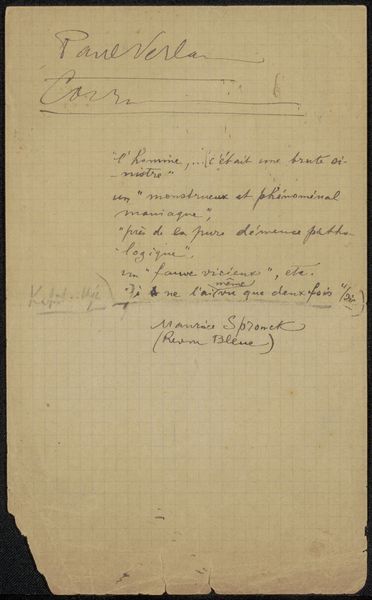 Paul Verla
Corr
"l'homme, ... c'était une brute si-
nistre"
un "monstrueux et phénoménal
maniaque",
"près de la pure démence patho-
logique".
un "fauve vicieux", etc.
ne l'ai même vu que deux fois
Maurice Spronck
(Revue Bleue)